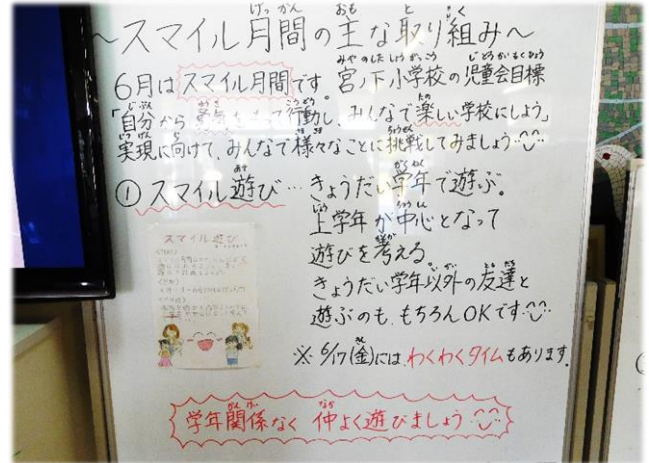 ～スマイル月間の主な取り組み～
6月はスマイル月間です。宮ノ下小学校の児童会目標
「自分から勇気をもって行動し、みんなで楽しい学校にしよう」
実現に向けて、みんなで様々なことに挑戦してみましょう
① スマイル遊び…きょうだい学年で遊ぶ。
上学年が中心となって
遊びを考える。
きょうだい学年以外の友達と
遊ぶのも、もちろんOKです
※ 6/17(金)には、わくわくタイムもあります。
スマイル遊び
学年関係なく 仲よく遊びましょう